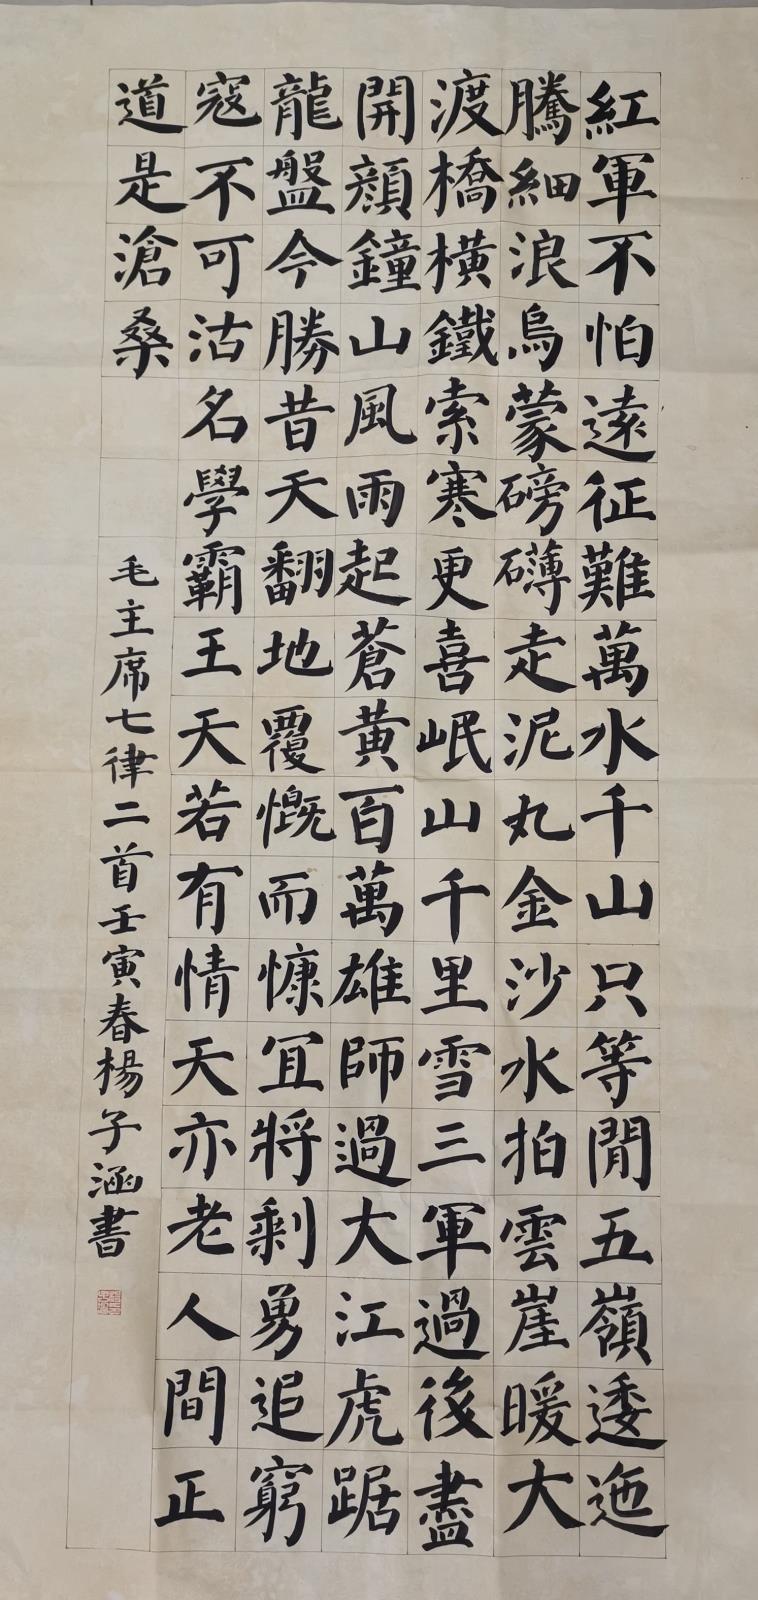 紅軍不怕遠征難萬水千山只等閒五嶺逶迤
騰細浪烏蒙磅礴走泥丸金沙水拍雲崖暖大
渡橋橫鐵索寒更喜岷山千里雪三軍過後盡
開顏鐘山風雨起蒼黃百萬雄師過大江虎踞
龍盤今勝昔天翻地覆慨而慷冝將剩勇追窮
寇不可沽名學霸王天若有情天亦老人間正
道是滄桑
毛主席七律二首壬寅春楊子涵書